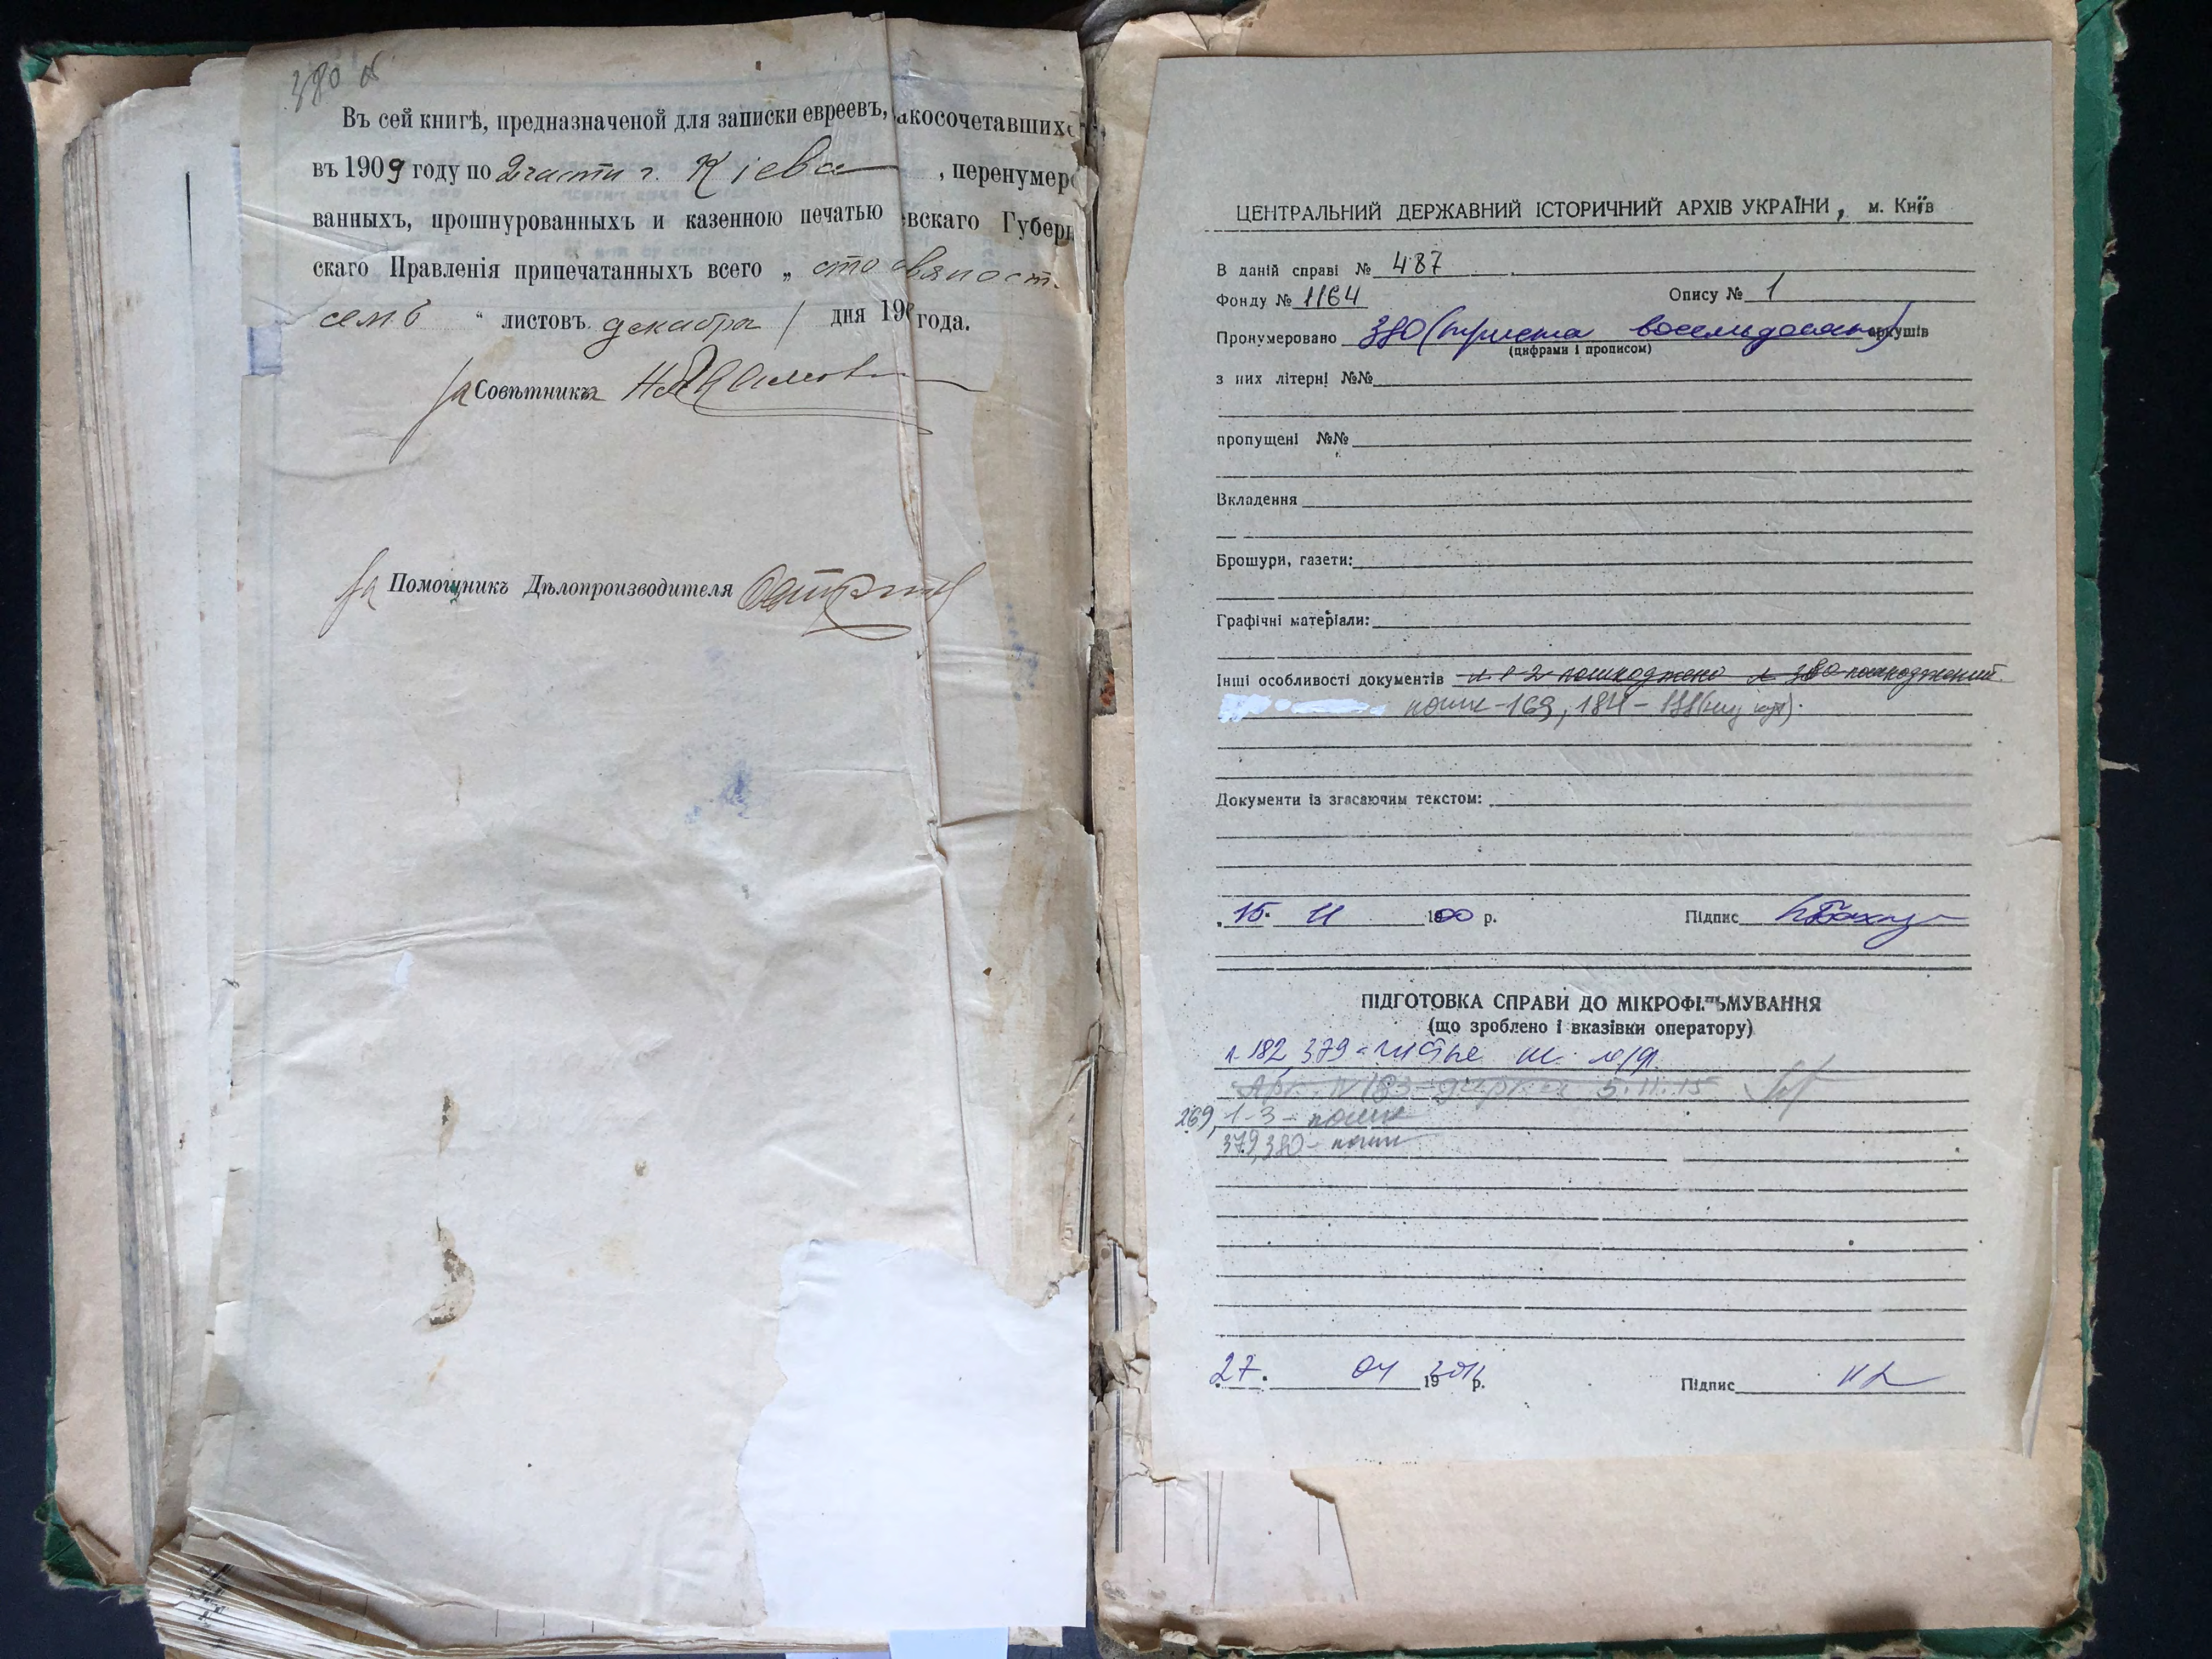 380 об
Въ сей книгѣ, предназначеной для записки евреевъ, акосочетавшихс
въ 1909 году по 2 части г. Кіева , перенумеро
ванныхъ, прошнурованныхъ и казенною печатью евскаго Губерн
скаго Правленія припечатанныхъ всего „ сто девяност
семь “ листовъ декабря / дня 190 года.
За Совѣтника
За Помощникъ Дѣлопроизводителя
ЦЕНТРАЛЬНИЙ ДЕРЖАВНИЙ ІСТОРИЧНИЙ АРХІВ УКРАЇНИ, м. Київ
В даній справі № 487
Фонду № 1164 Опису № 1
Пронумеровано 380 (триста восемьдесят) аркушів
(цифрами і прописом)
з них літерні №№
пропущені №№
Вкладення
Брошури, газети:
Графічні матеріали:
Інші особливості документів л. 1-2 пошкоджено л. 380 пошкоджений
пошк - 169, 184 - 188
Документи із згасаючим текстом:
„ 15. 11 1900 р. Підпис
ПІДГОТОВКА СПРАВИ ДО МІКРОФІЛЬМУВАННЯ
(що зроблено і вказівки оператору)
л. 182, 379 - чистые
Арк. N 183 - дирка 5.11.15
269, 1-3 - пошк
379, 380 - пошк
27. 04 19 2011 р. Підпис